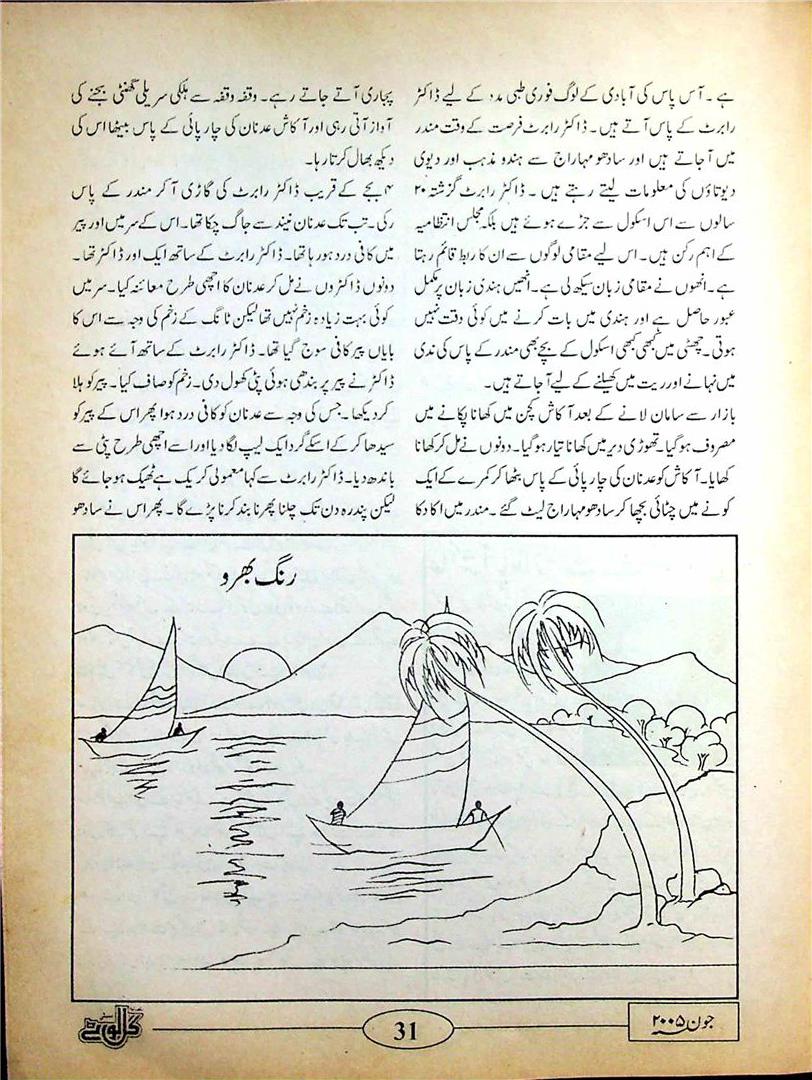 ہے ۔ آس پاس کی آبادی کے لوگ فوری طبی مدد کے لیے ڈاکٹر
رابرٹ کے پاس آتے ہیں ۔ ڈاکٹر رابرٹ فرصت کے وقت مندر
میں آ جاتے ہیں اور سادھو مہاراج سے ہندو مذہب اور دیوی
دیوتاؤں کی معلومات لیتے رہتے ہیں ۔ ڈاکٹر رابرٹ گزشتہ ۲۰
سالوں سے اس اسکول سے جڑے ہوئے ہیں بلکہ مجلس انتظامیہ
کے اہم رکن ہیں ۔ اس لیے مقامی لوگوں سے ان کا ربط قائم رہتا
ہے ۔ انھوں نے مقامی زبان سیکھ لی ہے ۔ انھیں ہندی زبان پر مکمل
عبور حاصل ہے اور ہندی میں بات کرنے میں کوئی دقت نہیں
ہوتی ۔ چھٹی میں کبھی کبھی اسکول کے بچے بھی مندر کے پاس کی ندی
میں نہانے اور ریت میں کھیلنے کے لیے آ جاتے ہیں ۔
بازار سے سامان لانے کے بعد آکاش کچن میں کھانا پکانے میں
مصروف ہو گیا ۔ تھوڑی دیر میں کھانا تیار ہو گیا ۔ دونوں نے مل کر کھانا
کھایا ۔ آکاش کو عدنان کی چارپائی کے پاس بٹھا کر کمرے کے ایک
کونے میں چٹائی بچھا کر سادھو مہاراج لیٹ گئے ۔ مندر میں اکا دکا
پجاری آتے جاتے رہے ۔ وقفہ وقفہ سے ہلکی سریلی گھنٹی بجنے کی
آواز آتی رہی اور آکاش عدنان کی چارپائی کے پاس بیٹھا اس کی
دیکھ بھال کرتا رہا ۔
۴ بجے کے قریب ڈاکٹر رابرٹ کی گاڑی آ کر مندر کے پاس
رکی ۔ تب تک عدنان نیند سے جاگ چکا تھا ۔ اس کے سر میں اور پیر
میں کافی درد ہو رہا تھا ۔ ڈاکٹر رابرٹ کے ساتھ ایک اور ڈاکٹر تھا ۔
دونوں ڈاکٹروں نے مل کر عدنان کا اچھی طرح معائنہ کیا ۔ سر میں
کوئی بہت زیادہ زخم نہیں تھا لیکن ٹانگ کے زخم کی وجہ سے اس کا
بایاں پیر کافی سوج گیا تھا ۔ ڈاکٹر رابرٹ کے ساتھ آئے ہوئے
ڈاکٹر نے پیر پر بندھی ہوئی پٹی کھول دی ۔ زخم کو صاف کیا ۔ پیر کو ہلا
کر دیکھا ۔ جس کی وجہ سے عدنان کو کافی درد ہوا پھر اس کے پیر کو
سیدھا کر کے اسکے گرد ایک لیپ لگا دیا اور اسے اچھی طرح پٹی سے
باندھ دیا ۔ ڈاکٹر رابرٹ سے کہا معمولی کریک ہے ٹھیک ہو جائے گا
لیکن پندرہ دن تک چلنا پھرنا بند کرنا پڑے گا ۔ پھر اس نے سادھو
رنگ بھرو
جون ۲۰۰۵
31
گل بوٹے